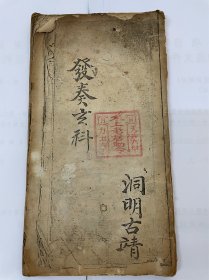 發奏玄科
洞明古靖